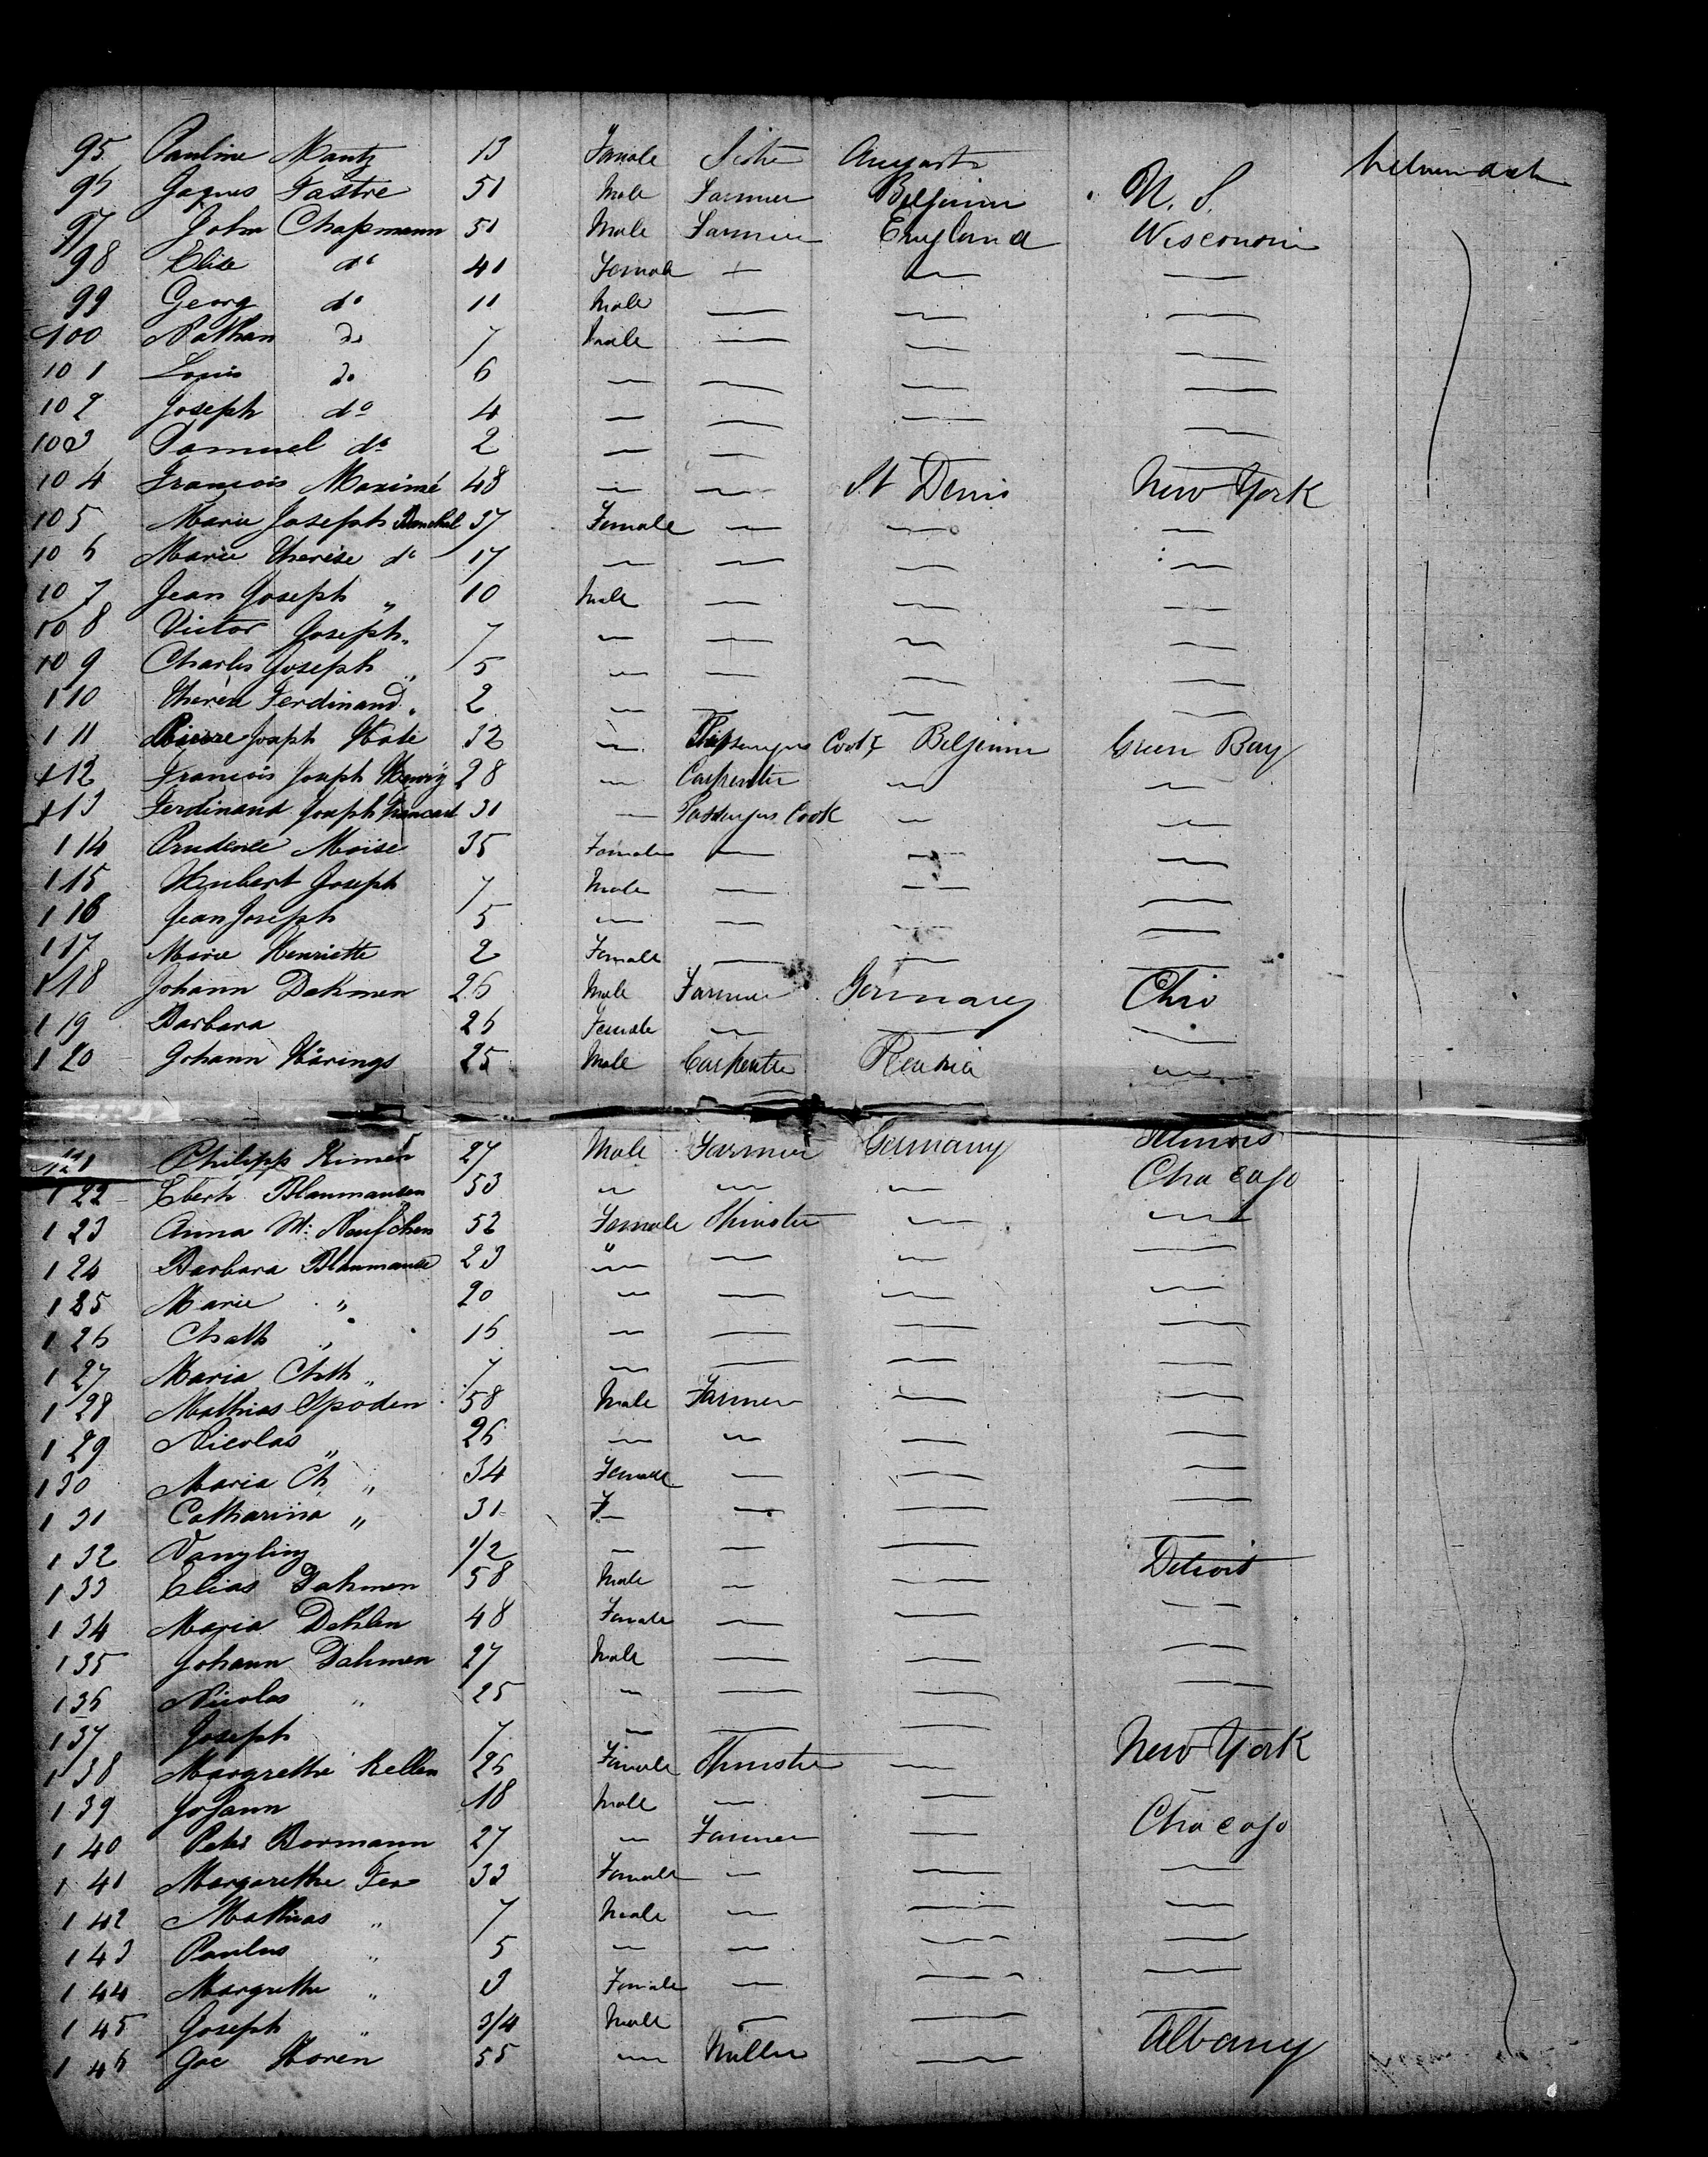 95 Pauline Mantz 13 Female Sister Augusta
96 Jaques Fastre 51 Male Farmer Belgium N. S.
97 John Chapmann 51 Male Farmer England Wisconsin
98 Elise do 41 Female — — —
99 Georg do 11 Male — — —
100 Nathan do 7 Male — — —
101 Louis do 6 — — — —
102 Joseph do 4 — — — —
103 Samuel do 2 — — — —
104 Francois Maximé 48 — — St Denis New York
105 Marie Joseph 37 Female — — —
106 Marie Therése do 17 — — — —
107 Jean Joseph " 10 Male — — —
108 Victor Joseph " 7 — — — —
109 Charles Joseph " 5 — — — —
110 Ferdinand " 2 — — — —
111 Pierre Joseph 32 — Passengers Cook Belgium Green Bay
112 Francois Joseph 28 — Carpenter — —
113 Ferdinand Joseph 31 — Passengers Cook — —
114 Prudence Moise 35 Female — — —
115 Joseph 7 Male — — —
116 Jean Joseph 5 — — — —
117 Marie Henriette 2 Female — — —
118 Johann Dahmen 26 Male Farmer Germany Ohio
119 Barbara 26 Female — — —
120 Johann Härings 25 Male Carpenter —
121 Philipp 27 Male Farmer Germany Illinois
122 53 — — — Chacago
123 Anna M: 52 Female Spinster — —
124 Barbara 23 " — — — —
125 Marie " 20 — — — —
126 Chath " 16 — — — —
127 Maria Cath " 7 — — — —
128 Mathias Spoden 58 Male Farmer — —
129 Nicolas " 26 — — — —
130 Maria Ch " 34 Female — — —
131 Catharina " 31 F— — — —
132 1/2 — — — —
133 Elias Dahmen 58 Male — — Detroit
134 Maria Dahlen 48 Female — — —
135 Johann Dahmen 27 Male — — —
136 Nicolas " 25 — — — —
137 Joseph 7 — — — —
138 Margrethe Kellen 26 Female Spinster — New York
139 Johann 18 Male — — —
140 Peter Bormann 27 — Farmer — Chacago
141 Margarethe 33 Female — — —
142 Mathias " 7 Male — — —
143 Paulus " 5 — — — —
144 Margrethe " 3 Female — — —
145 Joseph " 3/4 Male — — —
146 Jac Horen 55 — Miller — Albany